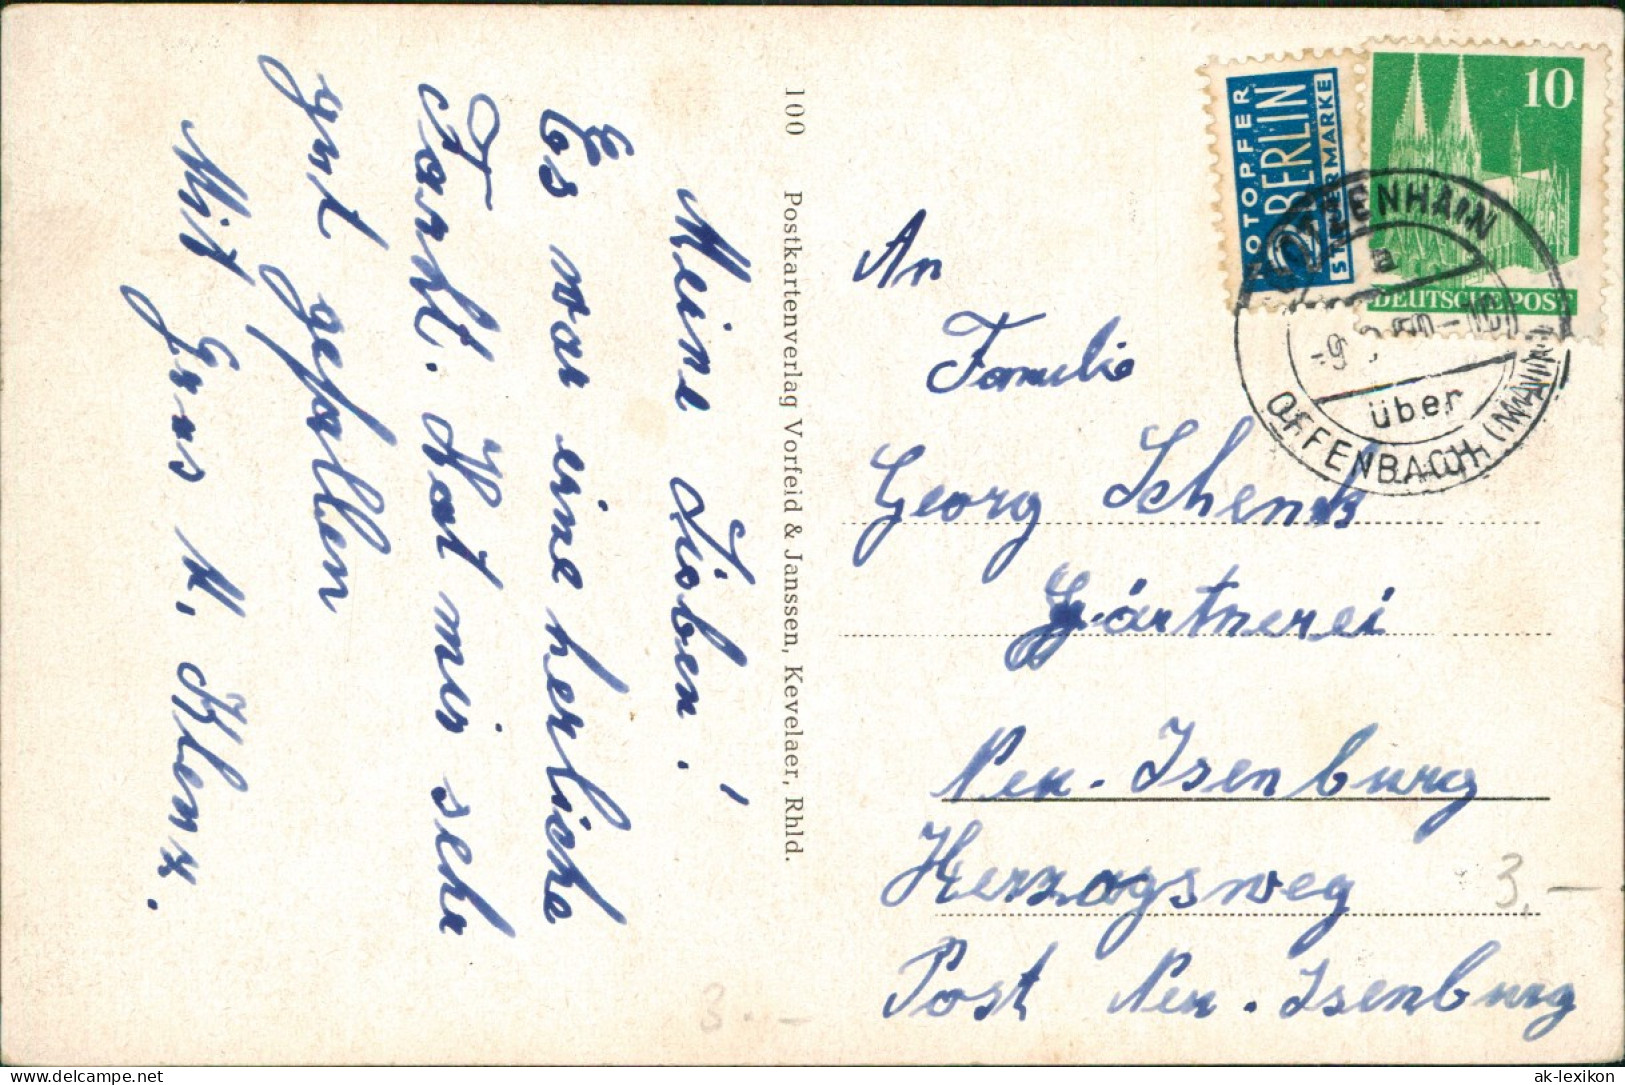 Meine Lieben!
Es war eine herliche
Farht. Hat mir sehr
gut gefallen
Mit Grus M. Klenz.
100 Postkartenverlag Vorfeid & Janssen, Kevelaer, Rhld.
NOTOPFER
2 BERLIN
STEUERMARKE
10
DEUTSCHE POST
GÖTZENHAIN
a
über
OFFENBACH (MAIN)
An
Familie
Georg Schenk
Gärtnerei
Neu-Isenburg
Herzogsweg
Post Neu-Isenburg
3.-
3.-
delcampe.net
ak-lexikon